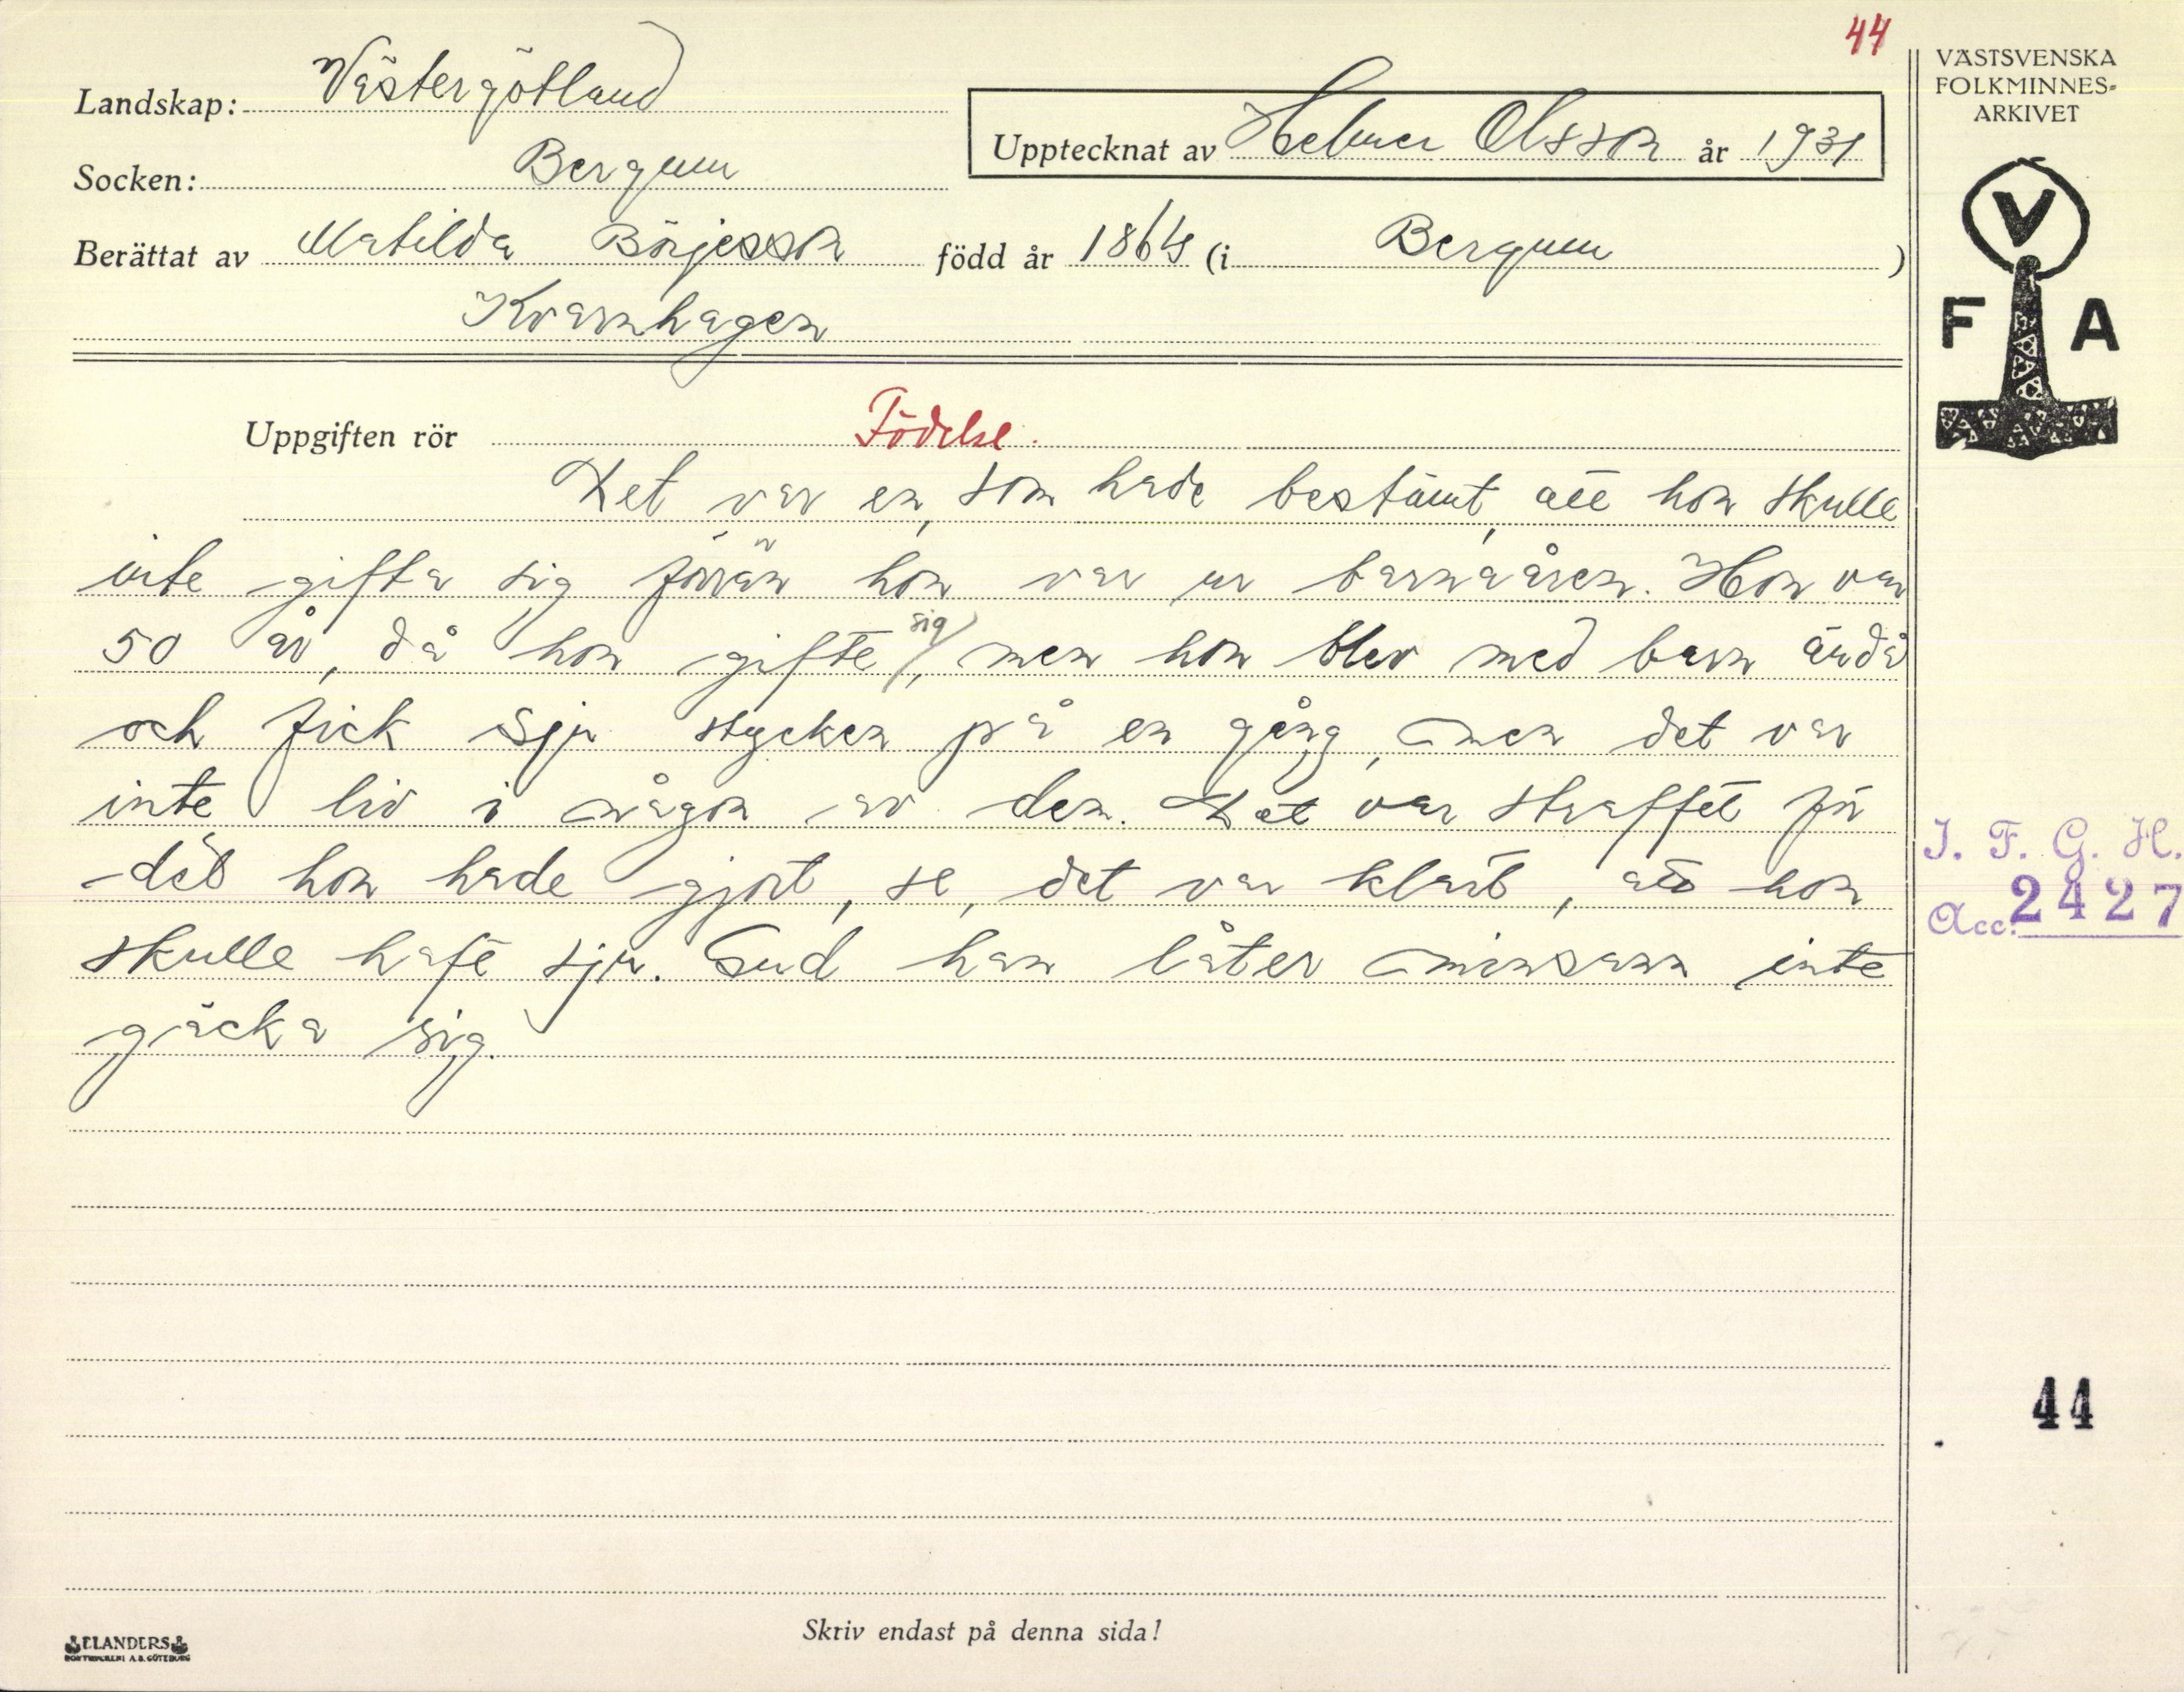 44
VÄSTSVENSKA
FOLKMINNES-
ARKIVET
Landskap: Västergötland
Upptecknat av Helmer Olsson år 1931
Socken: Bergum
Berättat av Matilda Börjesson född år 1864 (i Bergum)
Kvarnhagen
V
F A
Uppgiften rör Födelse.
Det var en, som hade bestämt, att hon skulle
inte gifta sig förrän hon var ur barnaåren. Hon var
50 år, då hon gifte sig, men hon blev med barn ändå
och fick sju stycken på en gång, men det var
inte liv i någon av dem. Det var straffet för
det hon hade gjort, se, det var klart, att hon
skulle haft sju. Gud han låter minsann inte
gäcka sig.
I. F. G. H.
Acc. 2427
44
Skriv endast på denna sida!
ELANDERS
BOKTRYCKERI A.B. GÖTEBORG